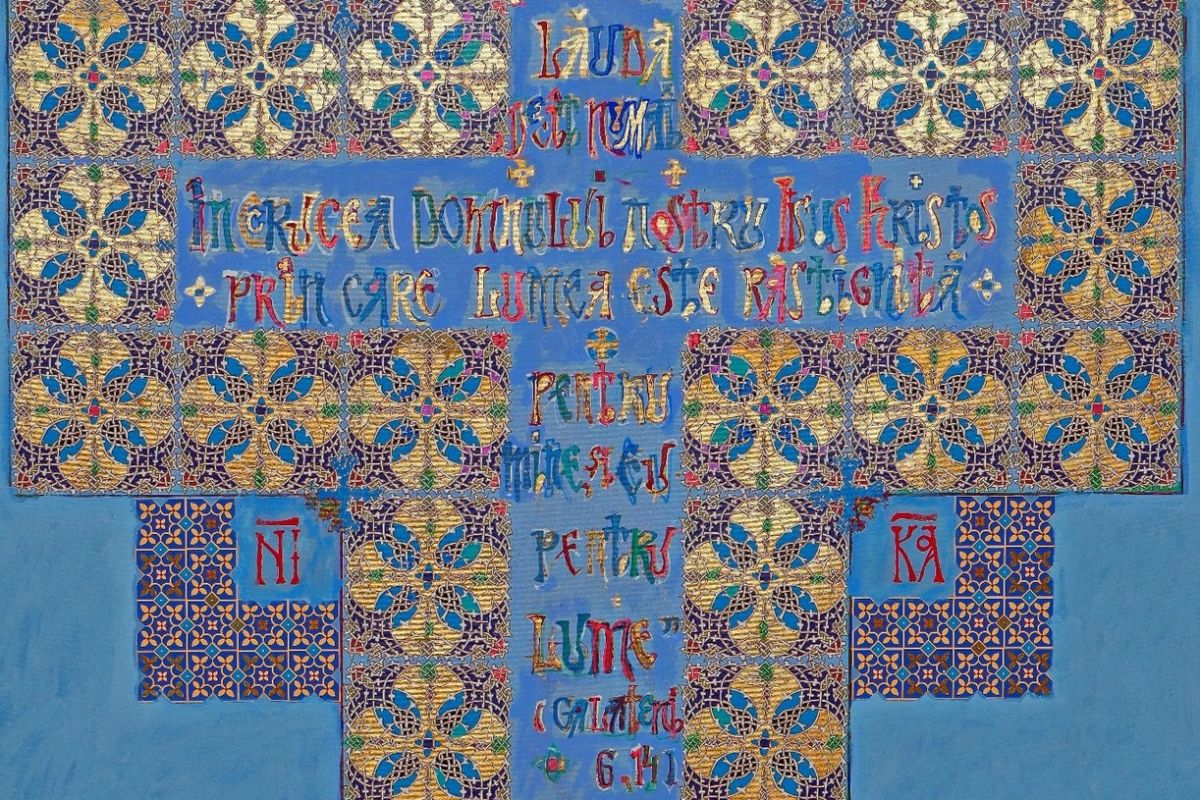 LĂUDA
DEcât NUMAI
ÎN CRUCEA DOMNULUI NOSTRU ISUS HRISTOS
PRIN CARE LUMEA ESTE RĂSTIGNITĂ
PENTRU
MINE, ȘI EU
PENTRU
LUME”
NI KA
(GALATENI
6,14)